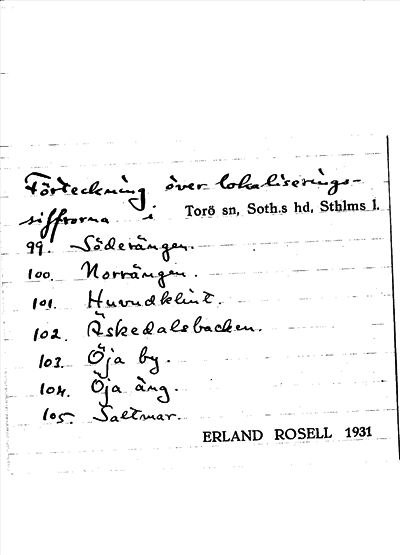 Förteckning över lokaliserings-
siffrorna i Torö sn, Soth.s hd, Sthlms l.
99. Söderängen.
100. Norrängen.
101. Huvudklint.
102. Äskedalsbacken.
103. Öja by.
104. Öja äng.
105. Saltmar.
ERLAND ROSELL 1931